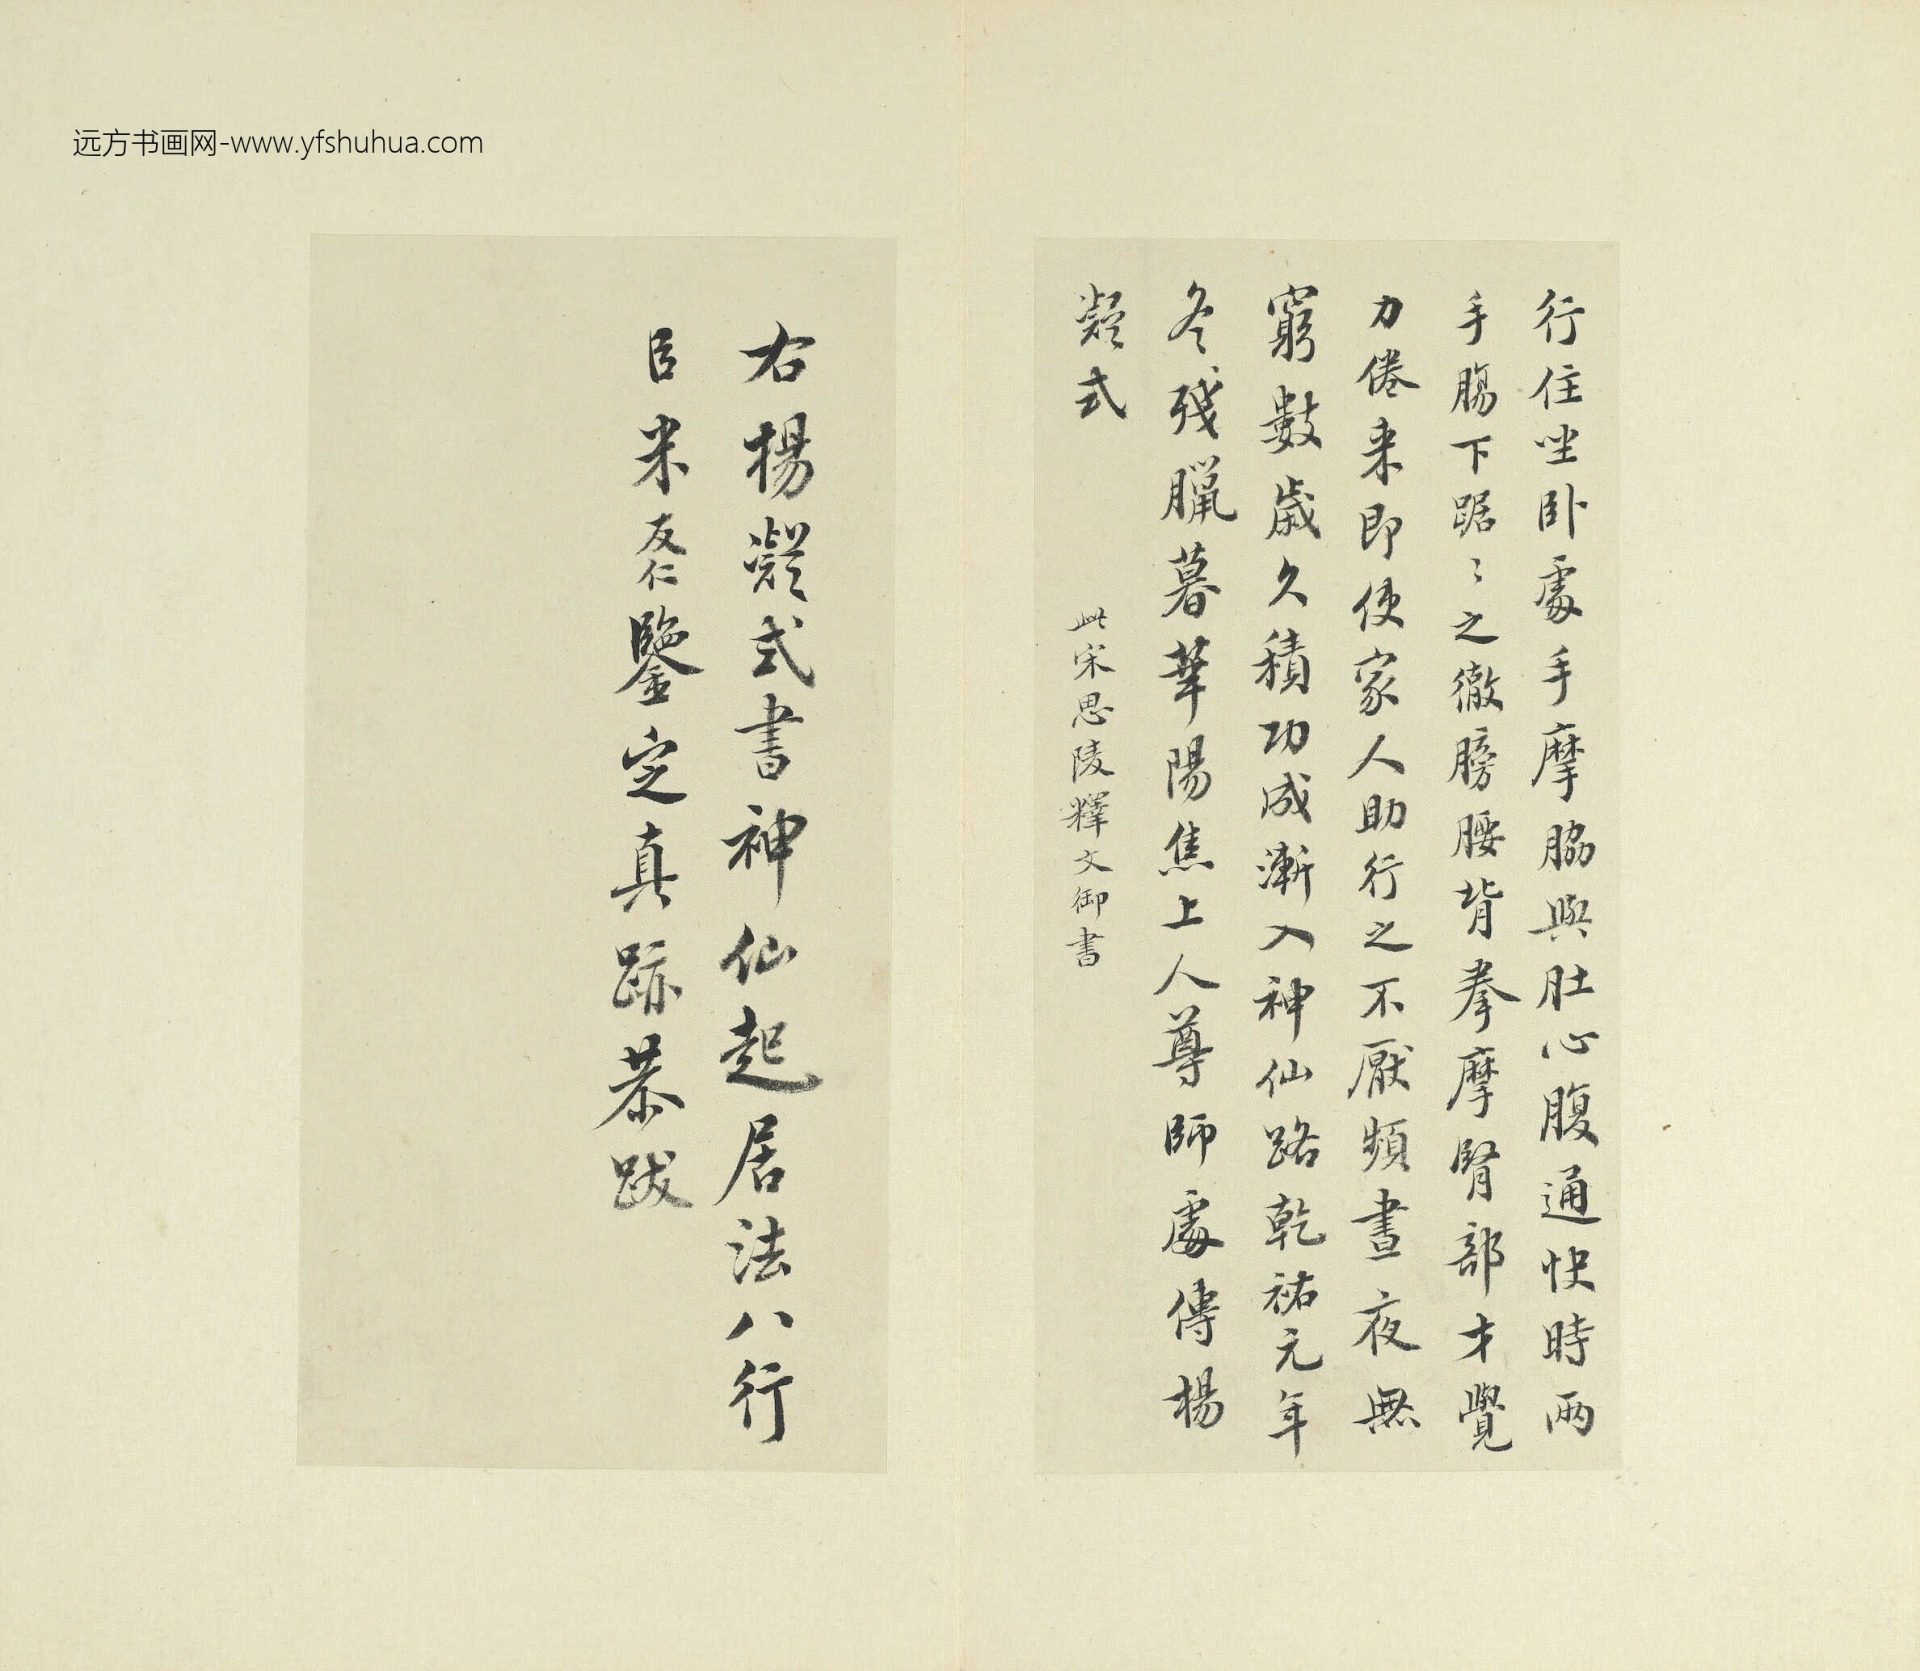 远方书画网-www.yfshuhua.com
行住坐卧處手摩脇與肚心腹通快時兩
手腸下踞〻之徹膀腰背拳摩腎部才覺
力倦来即使家人助行之不厭頻晝夜無
窮數歲久積功成漸入神仙路乾祐元年
冬殘臘暮華陽焦上人尊師處傳楊
凝式
此宋思陵釋文御書
右楊凝式書神仙起居法八行
臣米友仁鑒定真跡恭跋